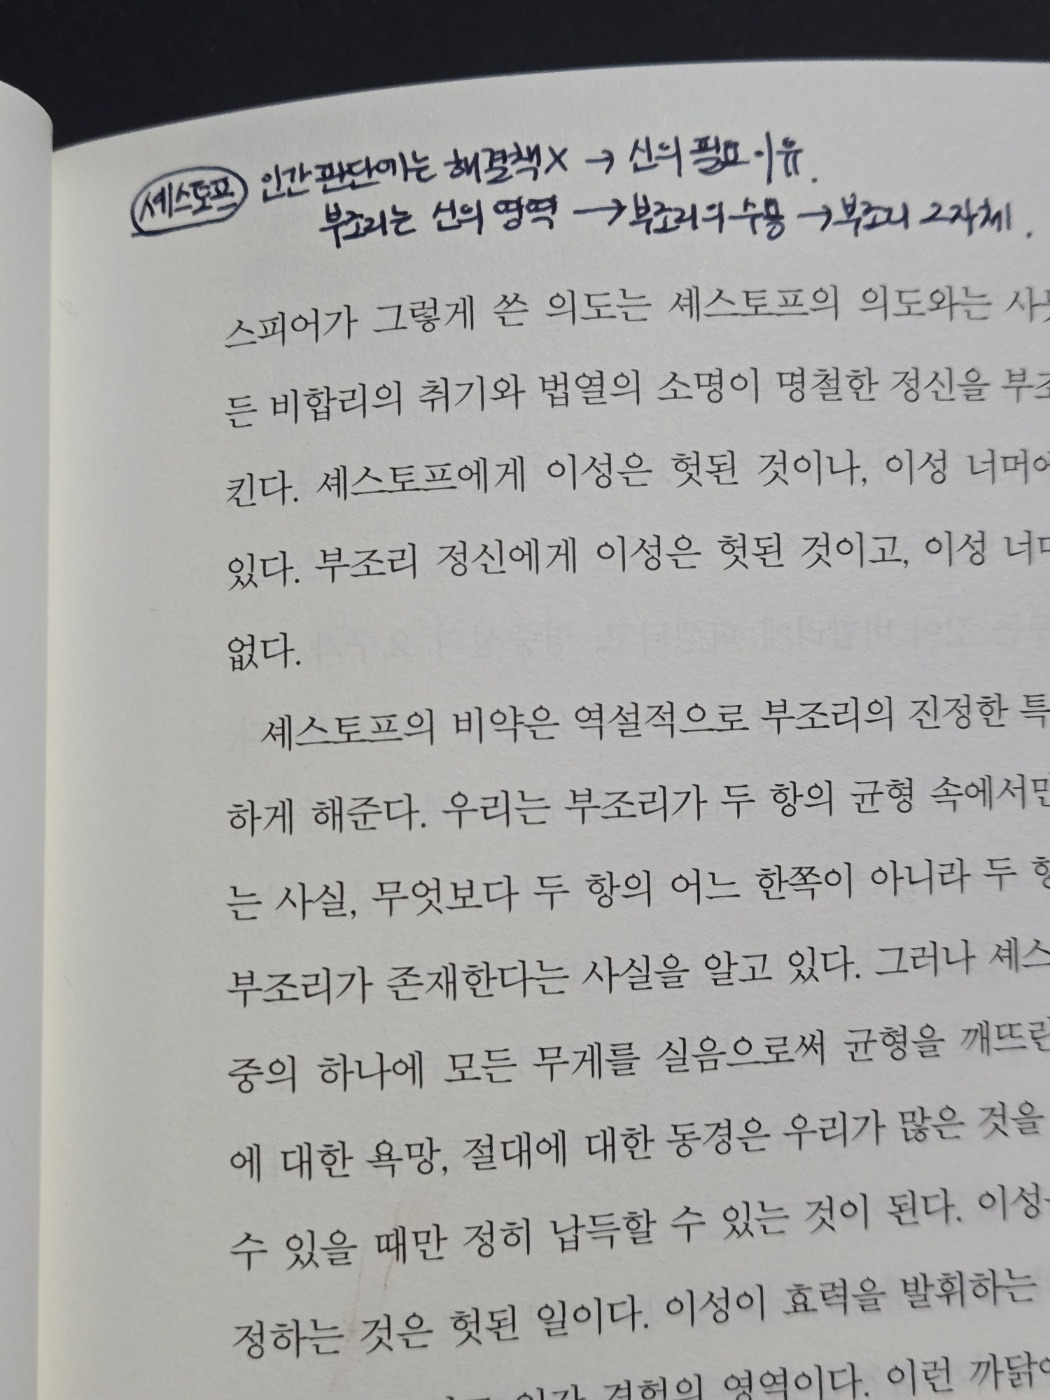 셰스토프 인간 판단에는 해결책X → 신의 필요 이유.
부조리는 신의 영역 → 부조리의 수용 → 부조리 그 자체.
스피어가 그렇게 쓴 의도는 셰스토프의 의도와는
든 비합리의 취기와 법열의 소명이 명철한 정신을 부조
킨다. 셰스토프에게 이성은 헛된 것이나, 이성 너머에
있다. 부조리 정신에게 이성은 헛된 것이고, 이성
없다.
셰스토프의 비약은 역설적으로 부조리의 진정한 특
하게 해준다. 우리는 부조리가 두 항의 균형 속에서만
는 사실, 무엇보다 두 항의 어느 한쪽이 아니라 두
부조리가 존재한다는 사실을 알고 있다. 그러나 셰스
중의 하나에 모든 무게를 실음으로써 균형을 깨뜨린
에 대한 욕망, 절대에 대한 동경은 우리가 많은 것을
수 있을 때만 정히 납득할 수 있는 것이 된다. 이성
정하는 것은 헛된 일이다. 이성이 효력을 발휘하는
인간 경험의 영역이다. 이런 까닭에